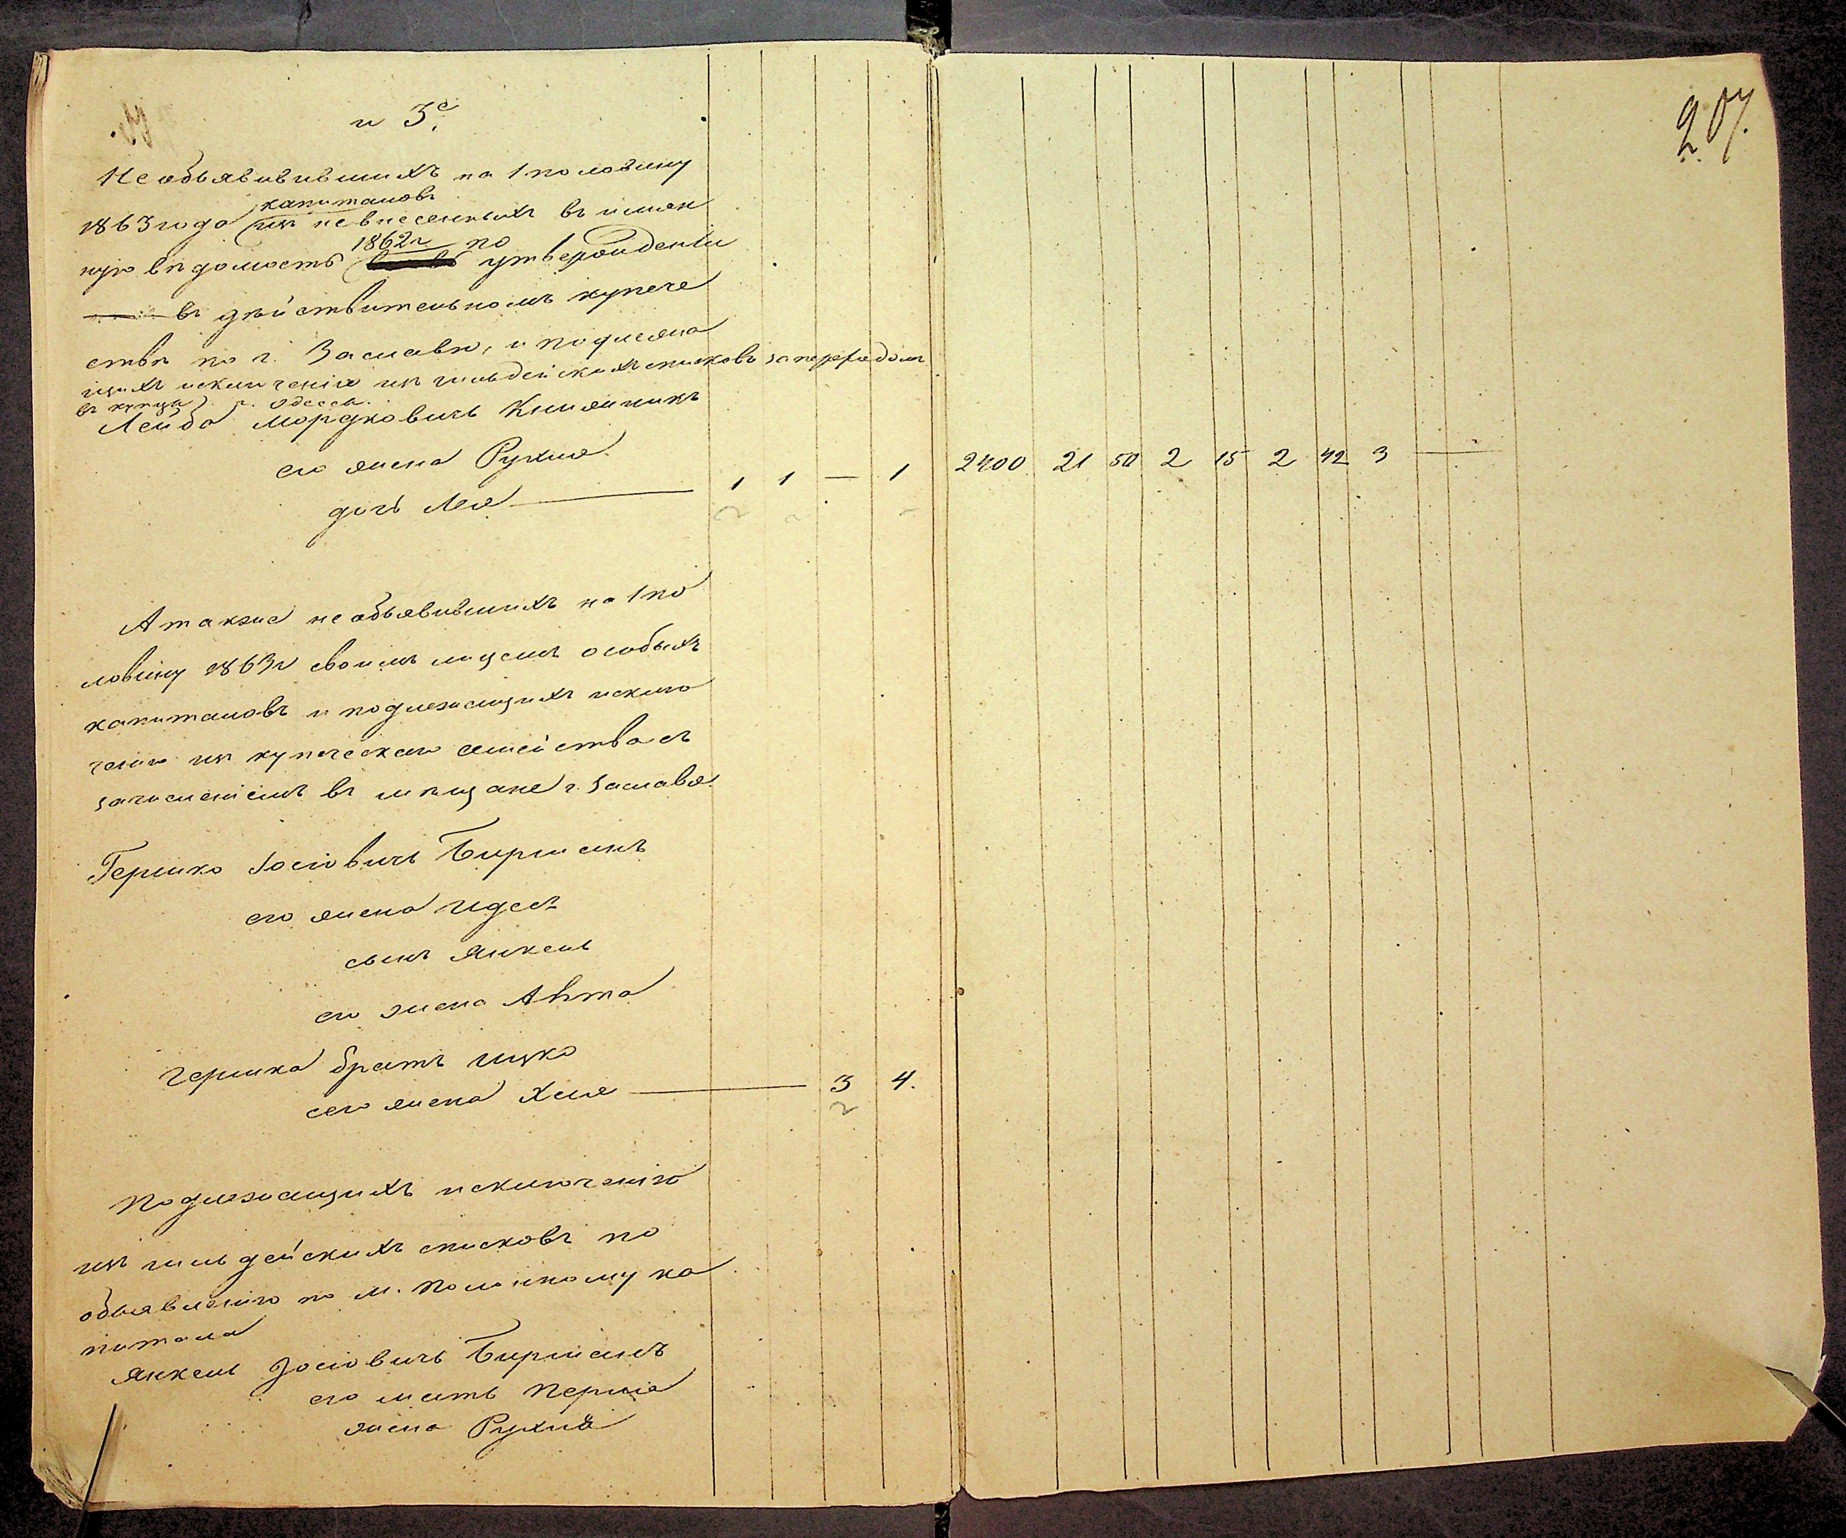 207.
и 3е.
Необъявившихъ на 1 половину
капиталовъ
1863 года и невнесенныхъ въ имен
1862 г по
ную вѣдомость утвержденіи
въ дѣйствительномъ купече
ствѣ по г. Заславю, и подлежа
щихъ исключенію изъ гильдейскихъ списковъ за переходомъ
въ купцы г. Одессы.
Лейба Мордковичь
его жена Рухля
дочь Лея — 1 1 — 1 2400 21 50 2 15 2 42 3 —
А также необъявившихъ на 1 по
ловину 1863 г своимъ лицемъ особыхъ
капиталовъ и подлежащихъ исклю
ченію изъ купеческаго семейства съ
зачисленіемъ въ мѣщане г. Заславля.
Гершко Іосіовичъ Бирманъ
его жена Идесъ
сынъ Янкель
его жена
Гершка братъ Ицко
сего жена Хая — 3 4.
Подлежащихъ исключенію
изъ гильдейскихъ списковъ по
объявленію по м. Полонному ка
питала
Янкель Іосіовичъ Бирманъ
его мать Перля
жена Рухля